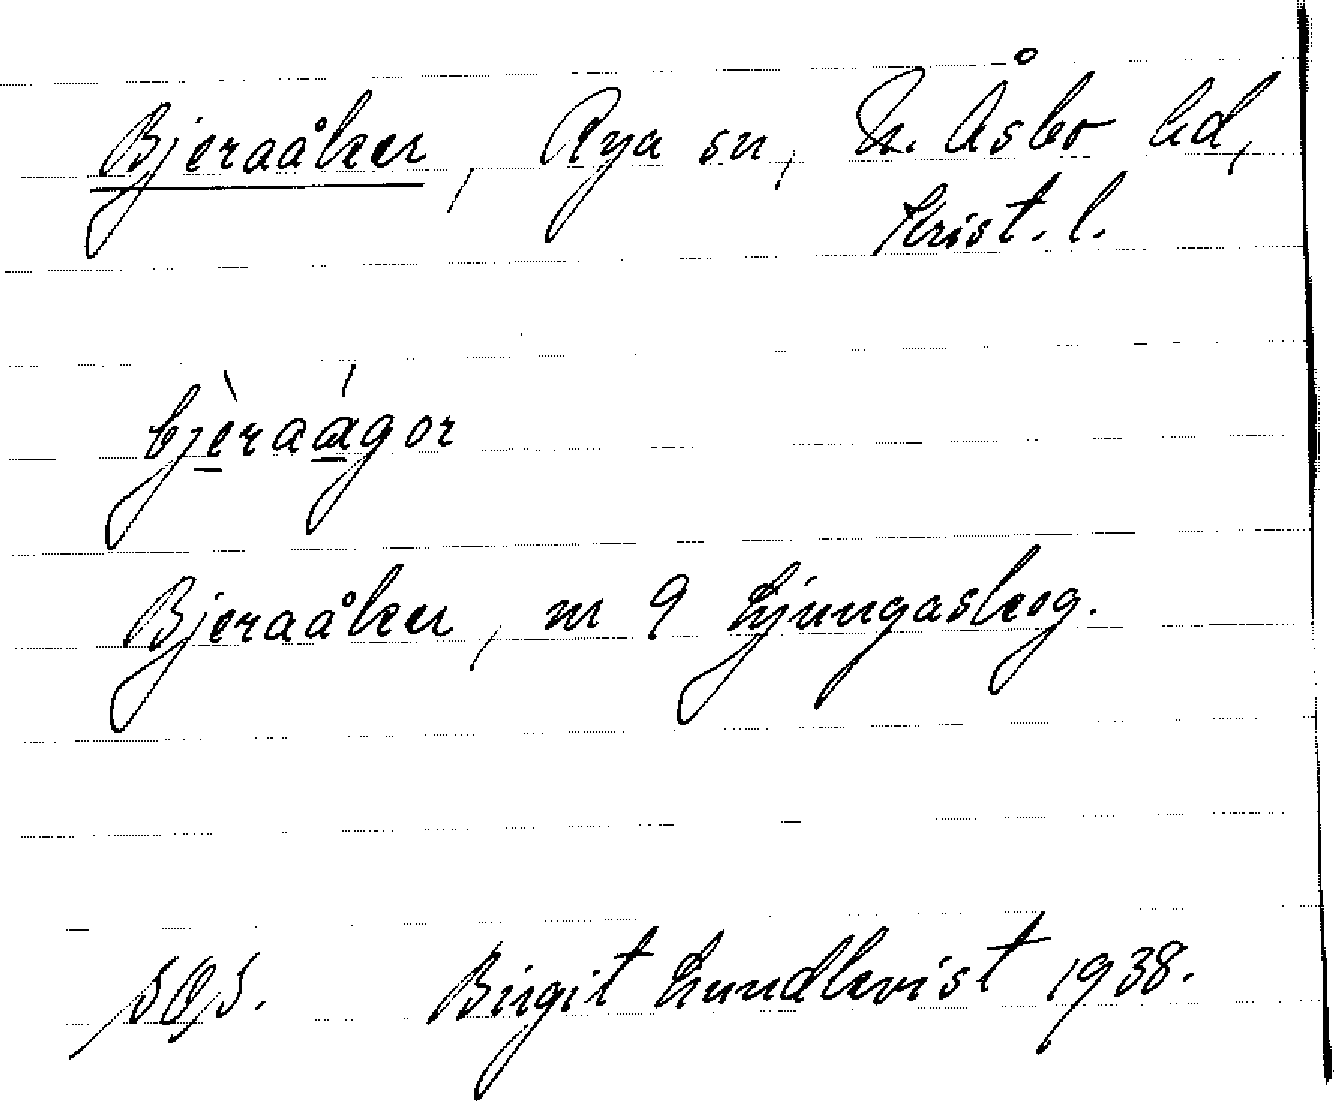 Bjeraåker, Rya sn, N. Åsbo hd,
Krist. l.
bjèraágor
Bjeraåker, nr 9 Ljungaskog.
Birgit Lundkvist 1938.